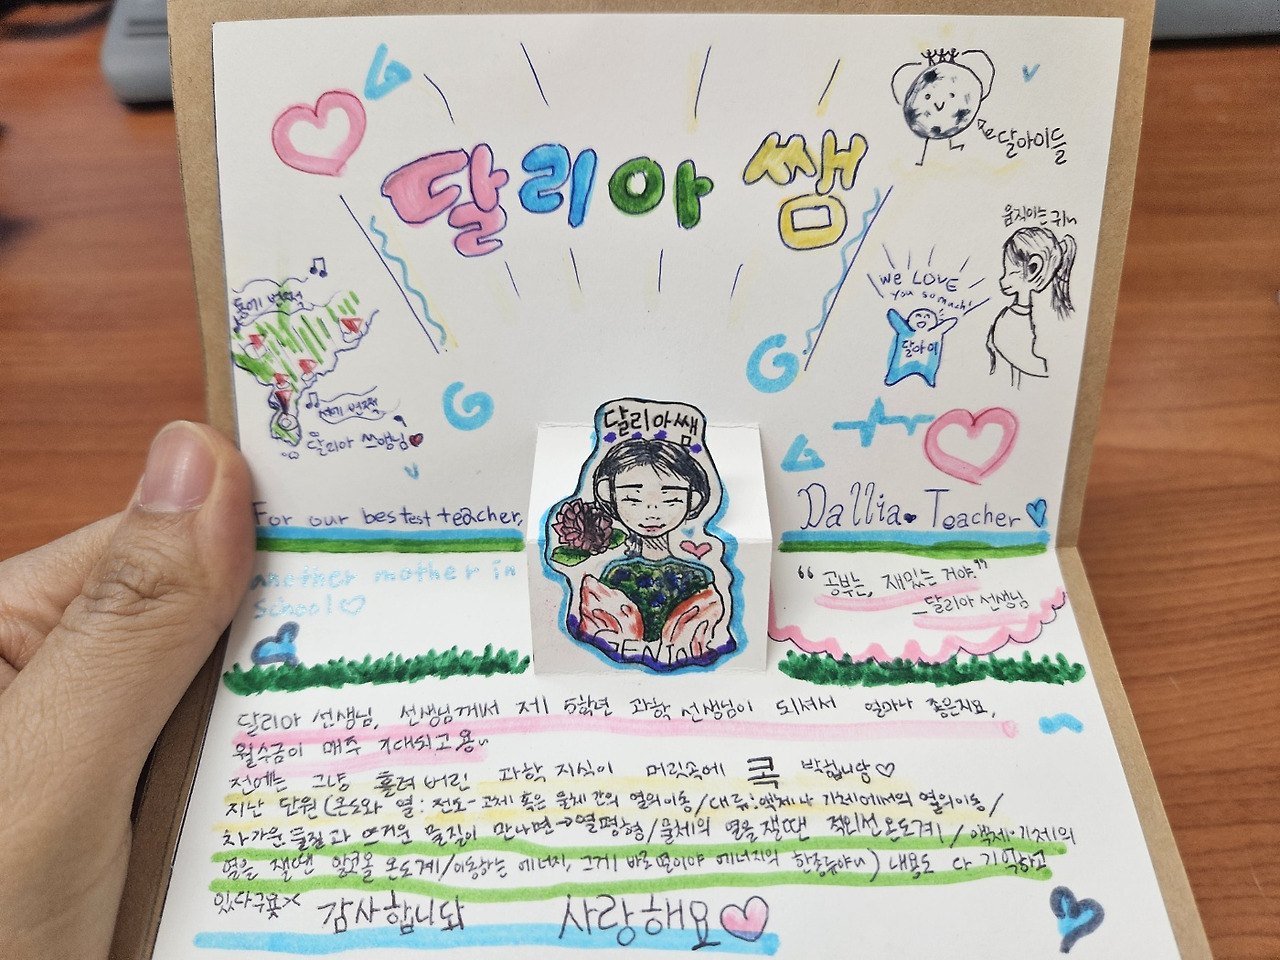 달리아 쌤
달아이들
움직이는 귀~
We LOVE
you so much!
달아이
동에 번쩍
서에 번쩍
달리아 쓰앵님
달리아쌤
GENIOUS
For our bestest teacher,
Dallia Teacher
another mother in
school
"공부는, 재밌는 거야."
_달리아 선생님
달리아 선생님, 선생님께서 제 5학년 과학 선생님이 되셔서 얼마나 좋은지요,
월수금이 매주 기대되고용~
전에는 그냥 흘려 버린 과학 지식이 머릿속에 콕 박힙니당
지난 단원(온도와 열: 전도-고체 혹은 물체 간의 열의이동/대류:액체나 기체에서의 열의이동/
차가운 물질과 뜨거운 물질이 만나면→열평형/물체의 열을 잴땐 적외선온도계/액체·기체의
열을 잴땐 알코올 온도계/이동하는 에너지, 그게 바로 열이야 에너지의 한종류야~) 내용도 다 기억하고
있다구욧
감사합니다 사랑해요